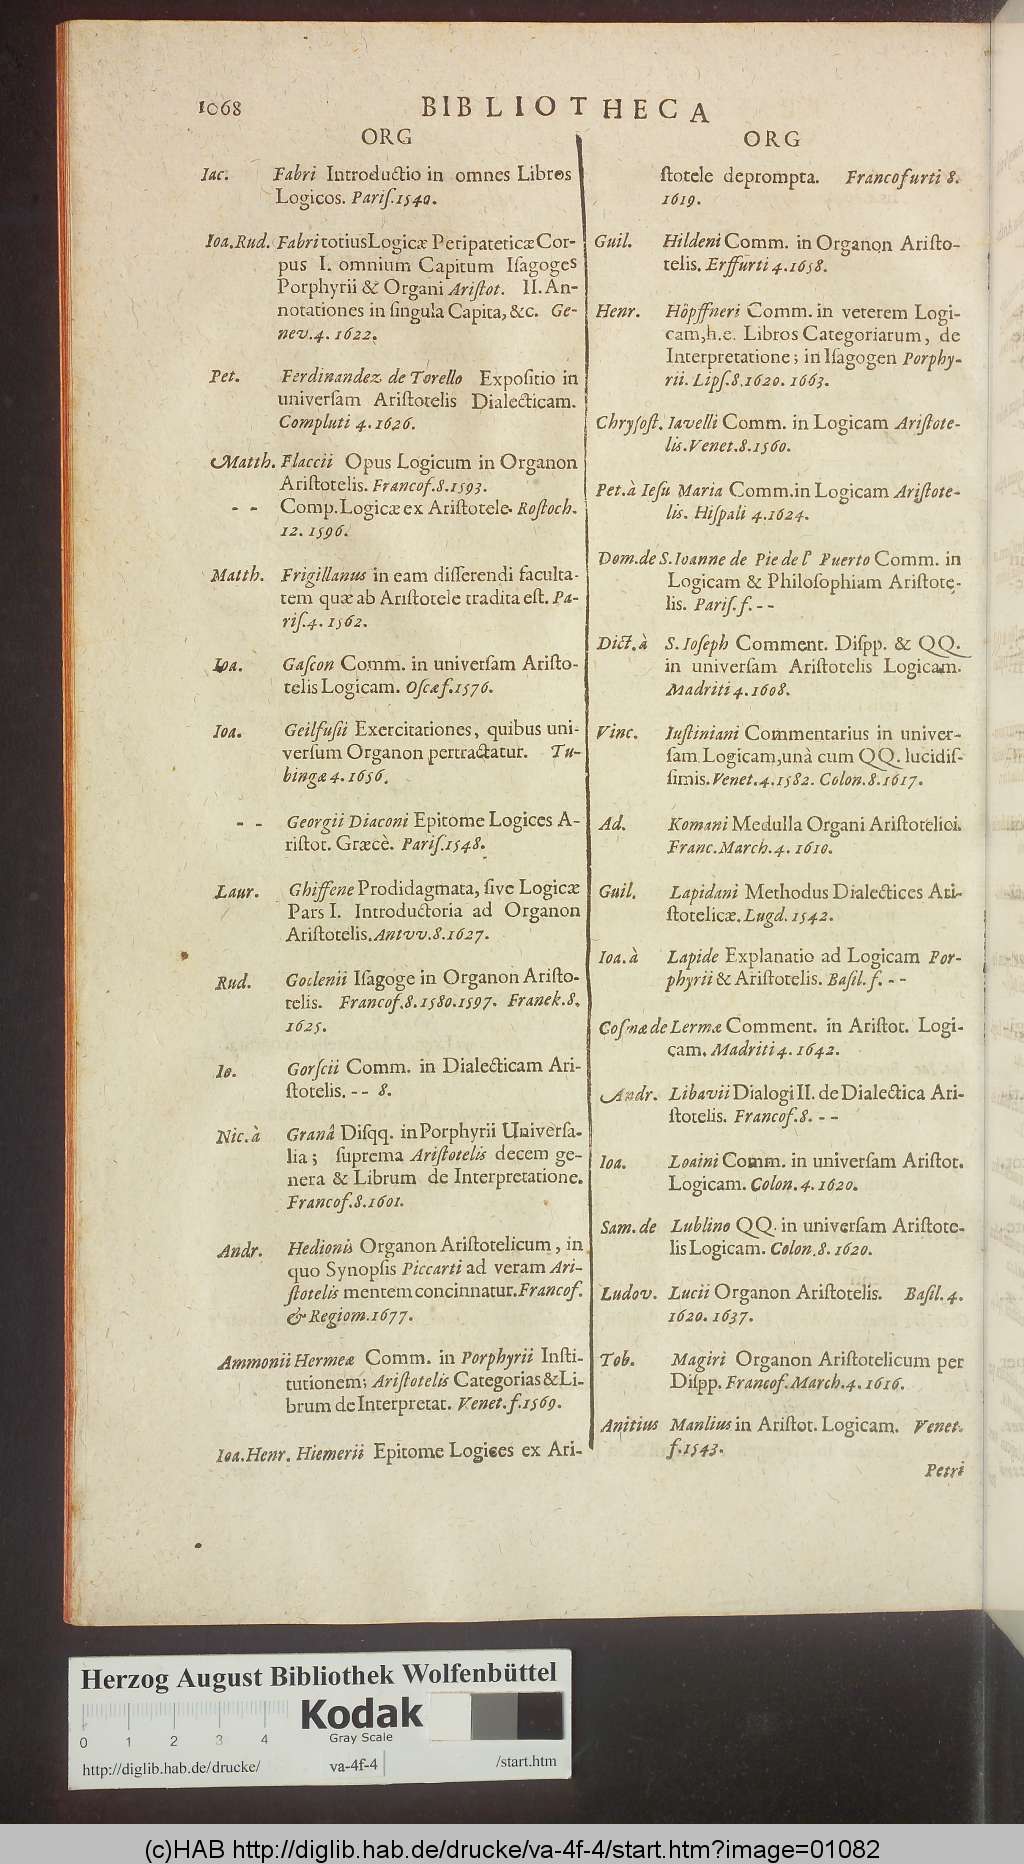 1068
BIBLIOTHECA
ORG
Iac. Fabri Introductio in omnes Libros
Logicos. Pariſ.1540.
Ioa.Rud. Fabri totius Logicæ Peripateticæ Cor-
pus I. omnium Capitum Iſagoges
Porphyrii & Organi Ariſtot. II. An-
notationes in ſingula Capita, &c. Ge-
nev.4. 1622.
Pet. Ferdinandez de Torello Expoſitio in
univerſam Ariſtotelis Dialecticam.
Compluti 4.1626.
Matth. Flaccii Opus Logicum in Organon
Ariſtotelis. Francof.8.1593.
- - Comp. Logicæ ex Ariſtotele. Roſtoch.
12. 1596.
Matth. Frigillanus in eam diſſerendi faculta-
tem quæ ab Ariſtotele tradita eſt. Pa-
riſ.4. 1562.
Ioa. Gaſcon Comm. in univerſam Ariſto-
telis Logicam. Oſcæ f.1576.
Ioa. Geilfuſii Exercitationes, quibus uni-
verſum Organon pertractatur. Tu-
bingæ 4.1656.
- - Georgii Diaconi Epitome Logices A-
riſtot. Græcè. Pariſ.1548.
Laur. Ghiffene Prodidagmata, ſive Logicæ
Pars I. Introductoria ad Organon
Ariſtotelis. Antvv.8.1627.
Rud. Goclenii Iſagoge in Organon Ariſto-
telis. Francof.8.1580.1597. Franek.8.
1625.
Io. Gorſcii Comm. in Dialecticam Ari-
ſtotelis. - - 8.
Nic. à Granâ Diſqq. in Porphyrii Univerſa-
lia; ſuprema Ariſtotelis decem ge-
nera & Librum de Interpretatione.
Francof.8.1601.
Andr. Hedionis Organon Ariſtotelicum, in
quo Synopſis Piccarti ad veram Ari-
ſtotelis mentem concinnatur. Francof.
& Regiom.1677.
Ammonii Hermeæ Comm. in Porphyrii Inſti-
tutionem; Ariſtotelis Categorias & Li-
brum de Interpretat. Venet.f.1569.
Ioa.Henr. Hiemerii Epitome Logices ex Ari-
ORG
ſtotele deprompta. Francofurti 8.
1619.
Guil. Hildeni Comm. in Organon Ariſto-
telis. Erffurti 4.1658.
Henr. Höpffneri Comm. in veterem Logi-
cam, h.e. Libros Categoriarum, de
Interpretatione; in Iſagogen Porphy-
rii. Lipſ.8.1620. 1663.
Chryſoſt. Iavelli Comm. in Logicam Ariſtote-
lis. Venet.8.1560.
Pet. à Ieſu Maria Comm. in Logicam Ariſtote-
lis. Hiſpali 4.1624.
Dom. de S. Ioanne de Pie de l' Puerto Comm. in
Logicam & Philoſophiam Ariſtote-
lis. Pariſ. f. - -
Dict. à S. Ioſeph Comment. Diſpp. & QQ.
in univerſam Ariſtotelis Logicam.
Madriti 4.1608.
Vinc. Iuſtiniani Commentarius in univer-
ſam Logicam, unà cum QQ. lucidiſ-
ſimis. Venet.4.1582. Colon.8.1617.
Ad. Komani Medulla Organi Ariſtotelici.
Franc.March.4. 1610.
Guil. Lapidani Methodus Dialectices Ari-
ſtotelicæ. Lugd. 1542.
Ioa. à Lapide Explanatio ad Logicam Por-
phyrii & Ariſtotelis. Baſil. f. - -
Coſmæ de Lermæ Comment. in Ariſtot. Logi-
cam. Madriti 4. 1642.
Andr. Libavii Dialogi II. de Dialectica Ari-
ſtotelis. Francof.8. - -
Ioa. Loaini Comm. in univerſam Ariſtot.
Logicam. Colon. 4. 1620.
Sam. de Lublino QQ. in univerſam Ariſtote-
lis Logicam. Colon.8. 1620.
Ludov. Lucii Organon Ariſtotelis. Baſil. 4.
1620. 1637.
Tob. Magiri Organon Ariſtotelicum per
Diſpp. Francof.March.4. 1616.
Anitius Manlius in Ariſtot. Logicam. Venet.
f.1543.
Petri
Herzog August Bibliothek Wolfenbüttel
Kodak
Gray Scale
0 1 2 3 4
http://diglib.hab.de/drucke/ va-4f-4 /start.htm
(c)HAB http://diglib.hab.de/drucke/va-4f-4/start.htm?image=01082